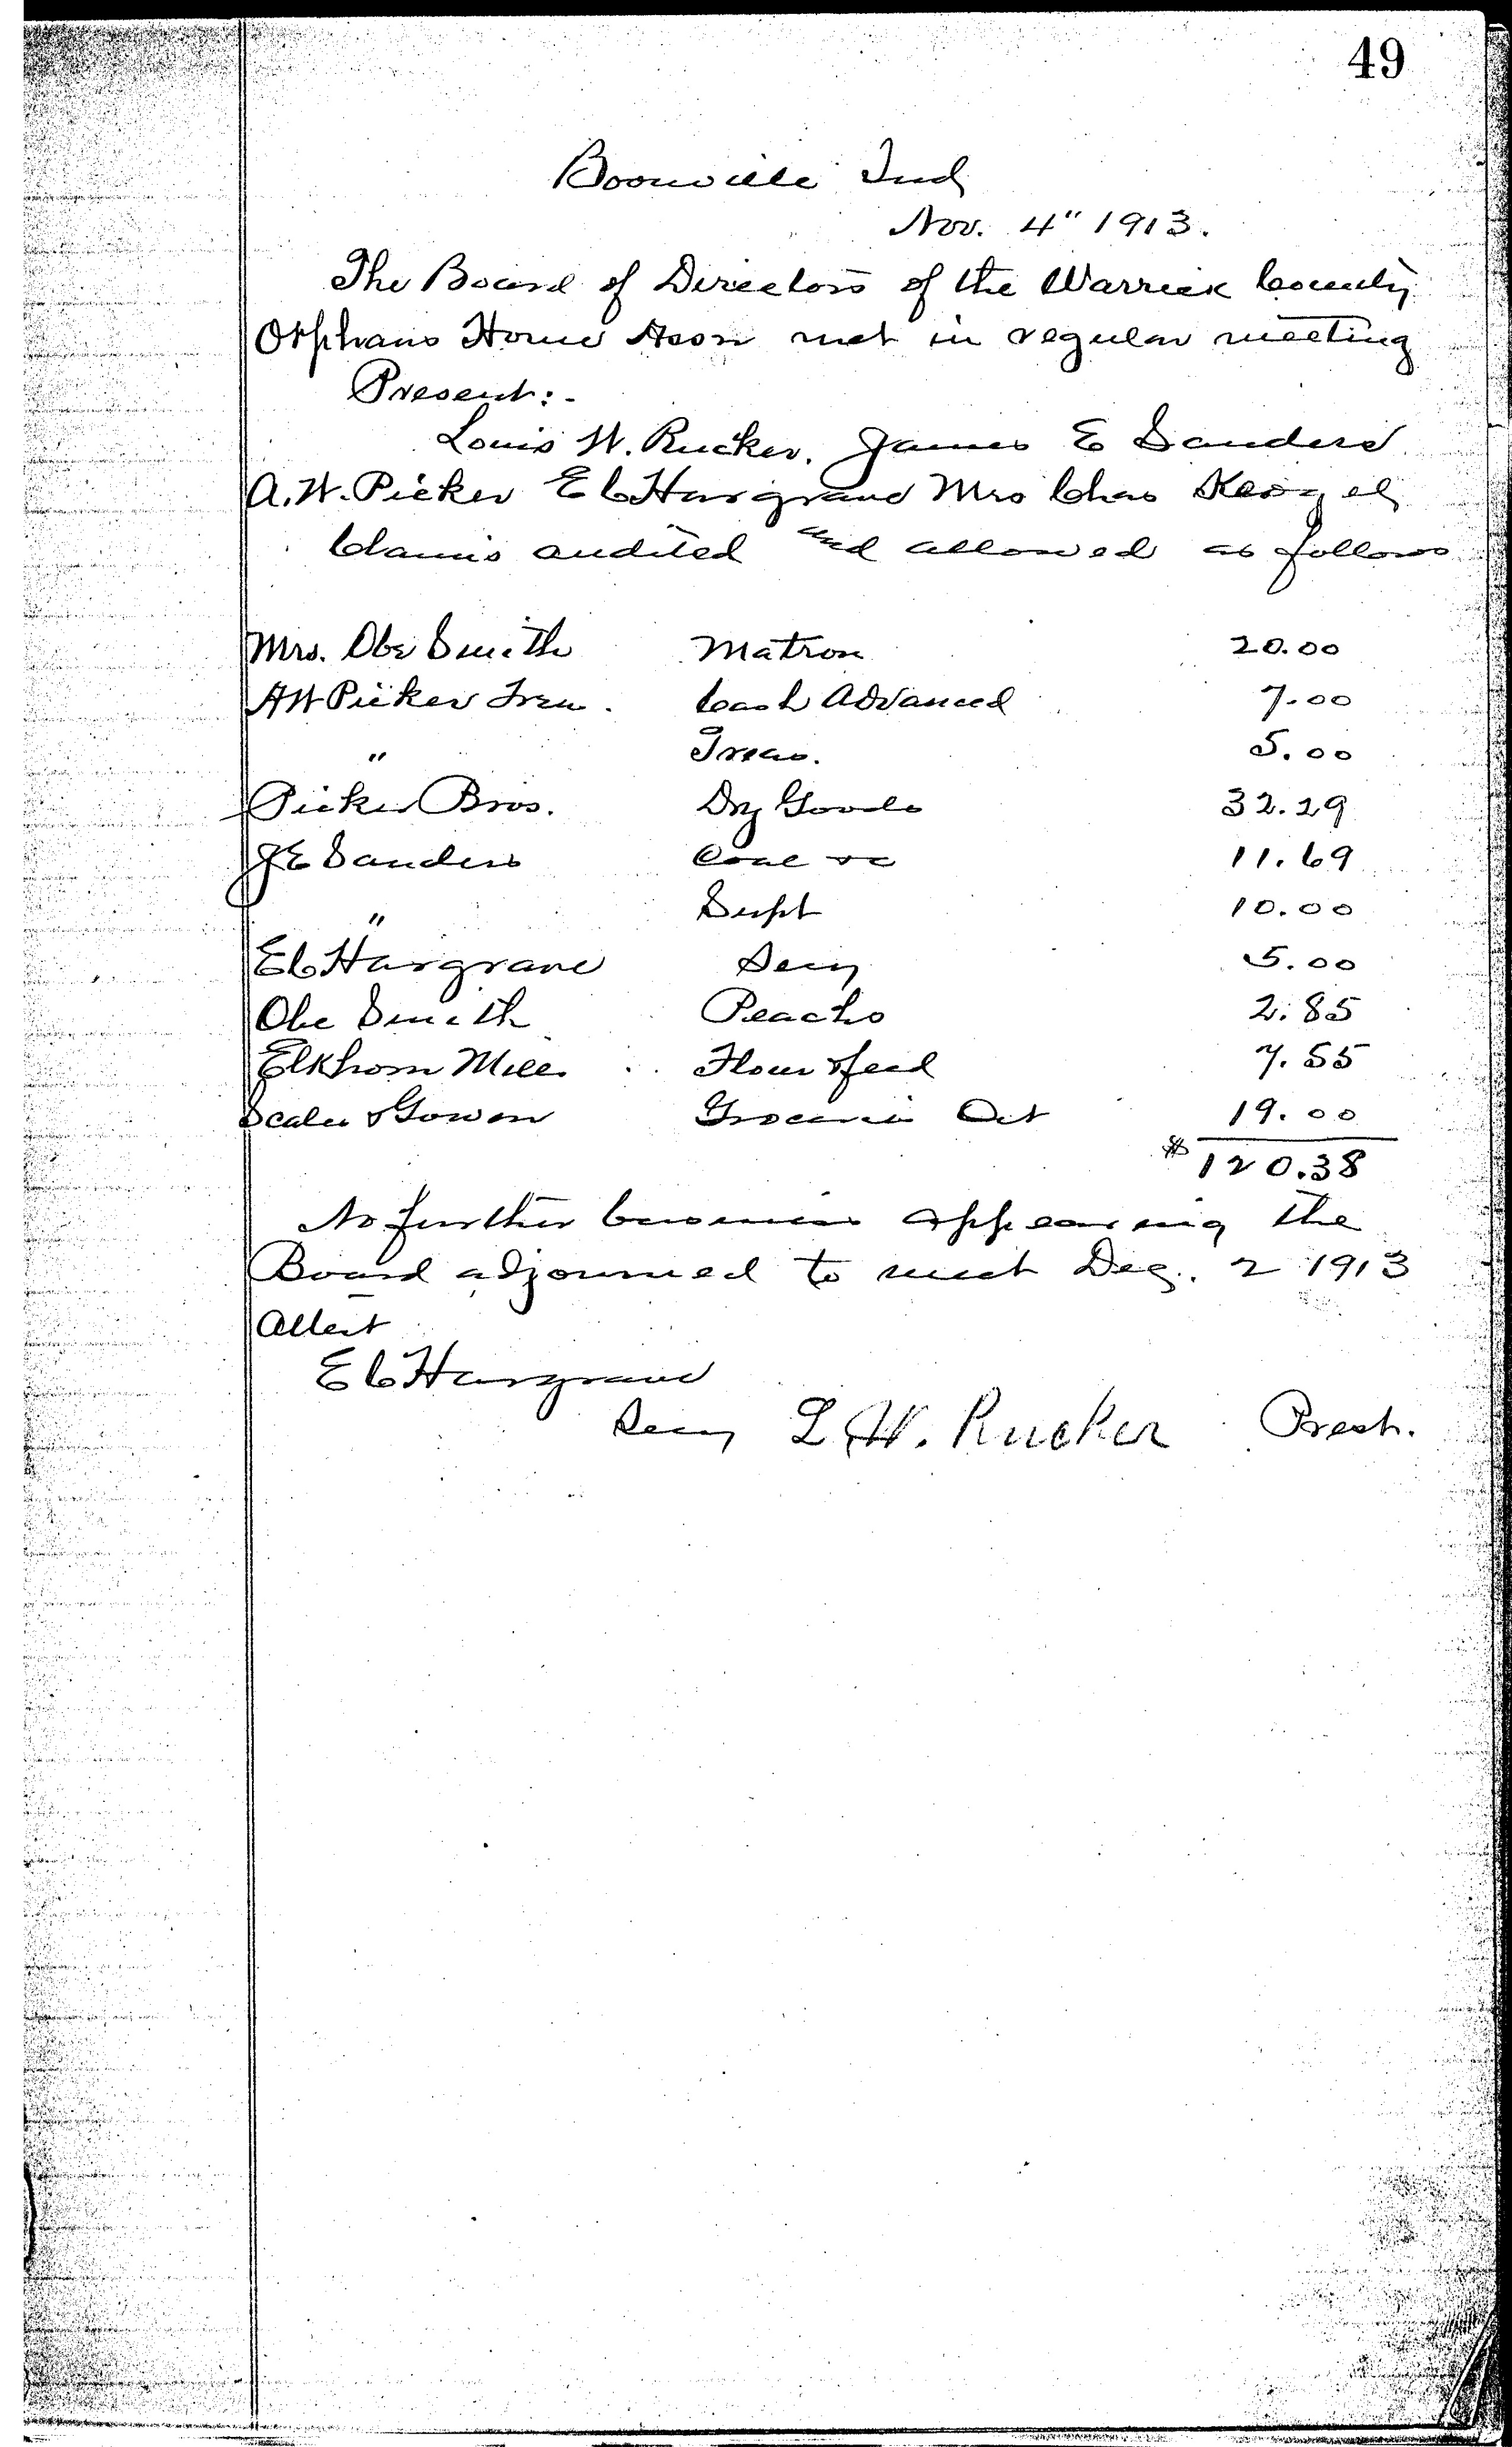 49
Boonville Ind
Nov. 4" 1913.
The Board of Directors of the Warrick County
Orphans Home Assn met in regular meeting
Present:-
Louis W. Rucker, James E Sanders
A.W. Picker E C Hargrave Mrs Chas
Claims audited and allowed as follows
Mrs. Obe Smith Matron 20.00
A W Picker Treas. Cash Advanced 7.00
" Treas. 5.00
Picker Bros. Dry Goods 32.29
J E Sanders Coal &c 11.69
" Supt 10.00
E C Hargrave Secy 5.00
Obe Smith Peaches 2.85
Elkhorn Mill Flour & feed 7.55
Scales & Gowen Groceries Oct 19.00
$ 120.38
No further business appearing the
Board adjourned to meet Dec. 2 1913
Attest
E C Hargrave
Secy L. W. Rucker Prest.